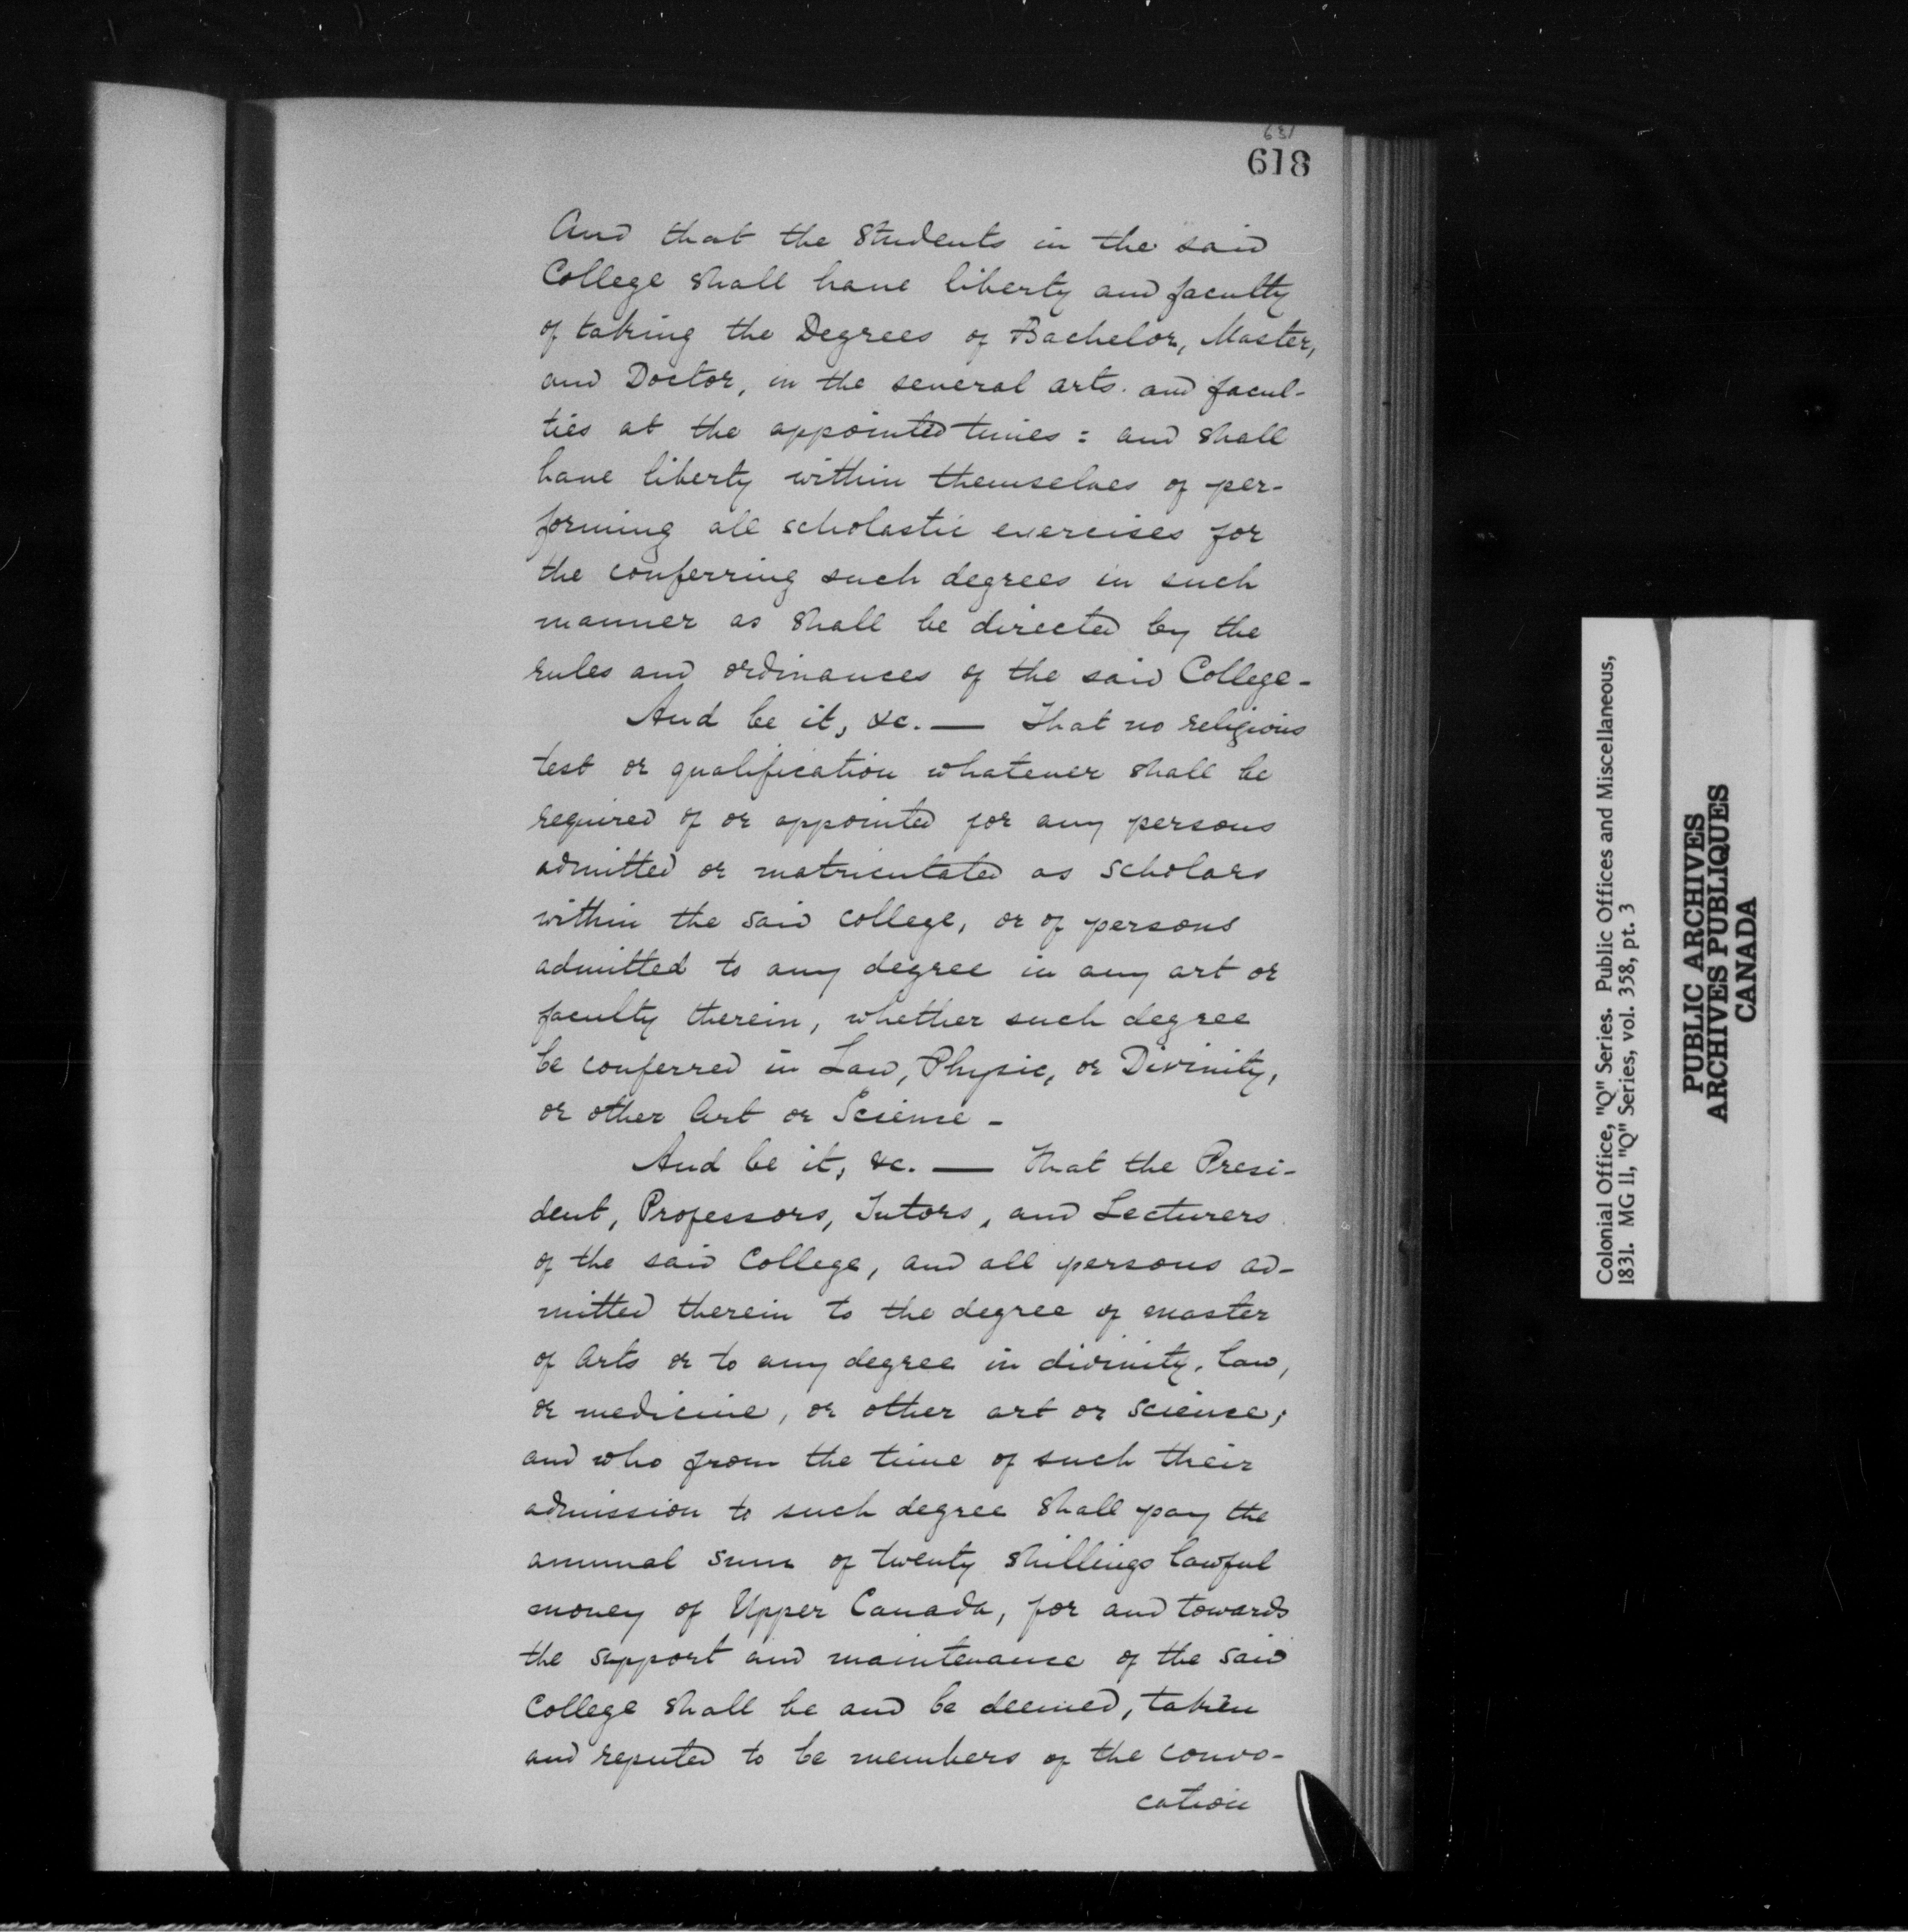 631
618
And that the Students in the said
College shall have liberty and faculty
of taking the Degrees of Bachelor, Master,
and Doctor, in the several arts and facul-
ties at the appointed times: and shall
have liberty within themselves of per-
forming all scholastic exercises for
the conferring such degrees in such
manner as shall be directed by the
rules and ordinances of the said College-
And be it, &c. — That no religious
test or qualification whatever shall be
required of or appointed for any persons
admitted or matriculated as scholars
within the said college, or of persons
admitted to any degree in any art or
faculty therein, whether such degree
be conferred in Law, Physic, or Divinity,
or other Art or Science -
And be it, &c. — That the Presi-
dent, Professors, Tutors, and Lecturers
of the said College, and all persons ad-
mitted therein to the degree of master
of Arts or to any degree in divinity, law,
or medicine, or other art or science;
and who from the time of such their
admission to such degree shall pay the
annual sum of twenty shillings lawful
money of Upper Canada, for and towards
the support and maintenance of the said
College shall be and be deemed, taken
and reputed to be members of the convo-
cation
Colonial Office, "Q" Series. Public Offices and Miscellaneous,
1831. MG 11, "Q" Series, vol. 358, pt. 3
PUBLIC ARCHIVES
ARCHIVES PUBLIQUES
CANADA